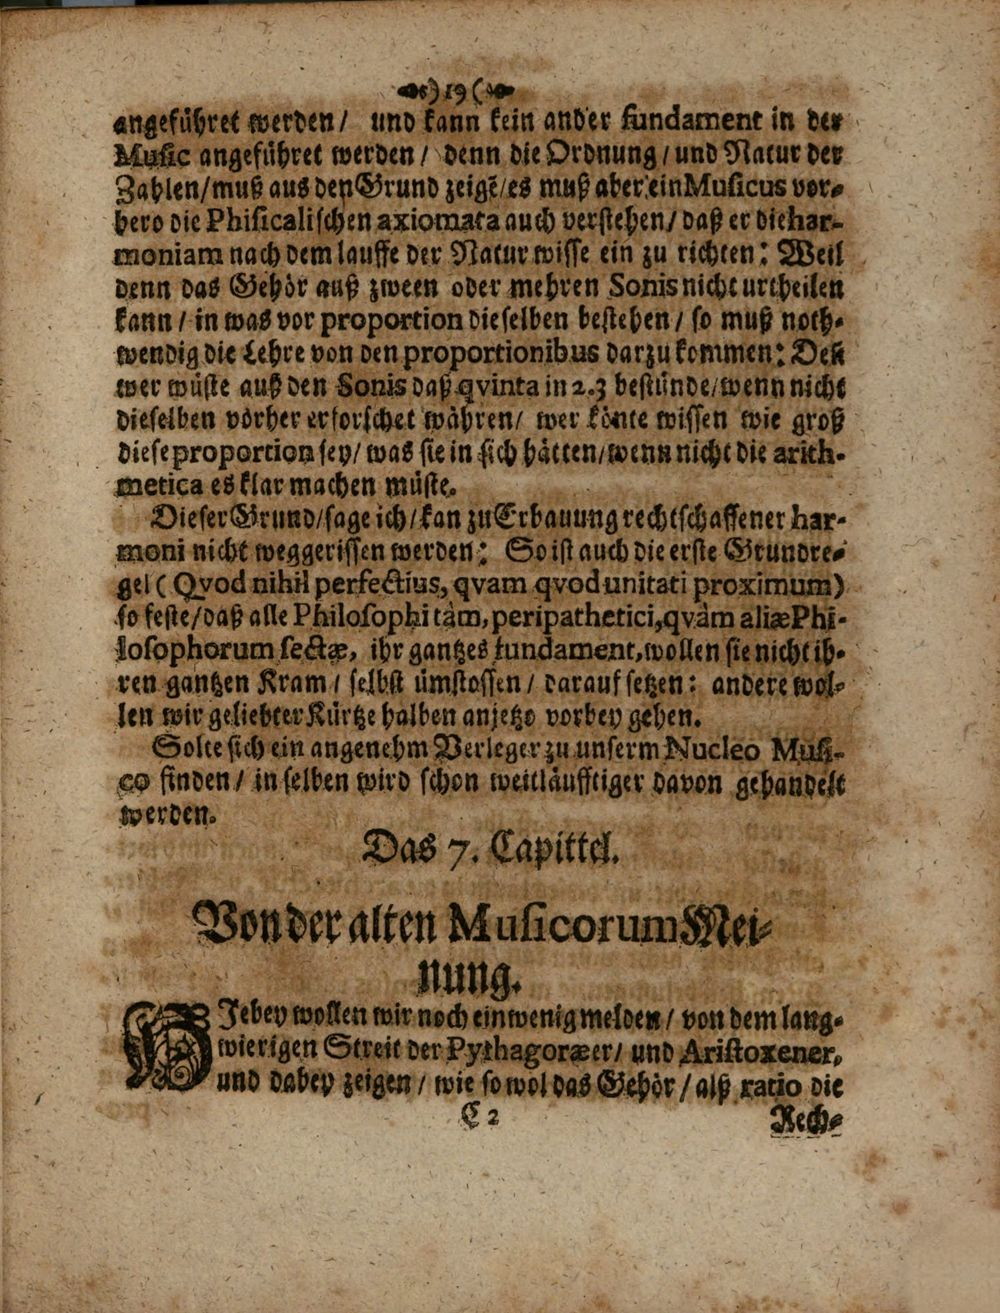 )19(
angeführet werden/ und kann kein ander fundament in der
Music angeführet werden/ denn die Ordnung/ und Natur der
Zahlen/muß aus den Grund zeigē/es muß aber ein Musicus vor-
hero die Phisicalischen axiomata auch verstehen/ daß er die har-
moniam nach dem lauffe der Natur wisse ein zu richten: Weil
denn das Gehör auß zween oder mehren Sonis nicht urtheilen
kann/ in was vor proportion dieselben bestehen/ so muß noth-
wendig die Lehre von den proportionibus darzu kommen: Deñ
wer wüste auß den Sonis daß qvinta in 2.3 bestünde/wenn nicht
dieselben vorher erforschet währen/ wer könte wissen wie groß
diese proportion sey/ was sie in sich hätten/wenn nicht die arith-
metica es klar machen müste.
Dieser Grund/sage ich/kan zu Erbauung rechtschaffener har-
moni nicht weggerissen werden: So ist auch die erste Grundre-
gel (Qvod nihil perfectius, qvam qvod unitati proximum)
so feste/daß alle Philosophi tàm, peripathetici, qvàm aliæ Phi-
losophorum sectæ, ihr gantzes fundament, wollen sie nicht ih-
ren gantzen Kram/ selbst ümstossen/ darauf setzen: andere wol-
len wir geliebter Kürtze halben anjetzo vorbey gehen.
Solte sich ein angenehm Verleger zu unserm Nucleo Musi-
co finden/ in selben wird schon weitläufftiger davon gehandelt
werden.
Das 7. Capittel.
Von der alten Musicorum Mei-
nung.
HJebey wollen wir noch ein wenig melden/ von dem lang-
wierigen Streit der Pythagoræer/ und Aristoxener,
und dabey zeigen/ wie so wol das Gehör/ alß ratio die
C 2
Rech-